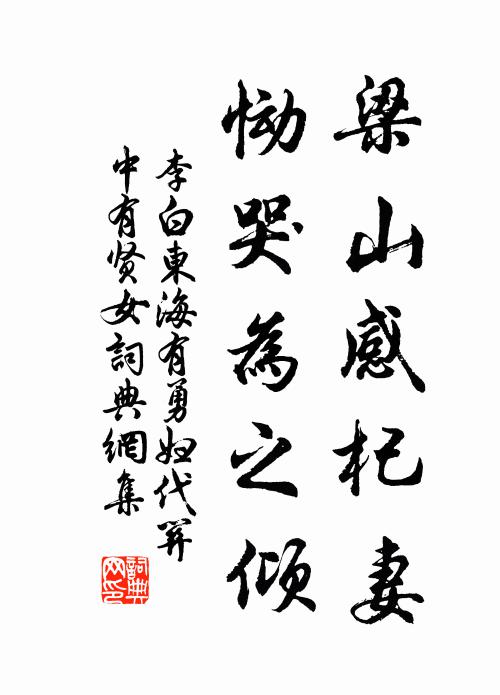 梁山感杞妻
恸哭為之傾
李白東海有勇婦代関
中有贤女詞典網集
詞典
网印